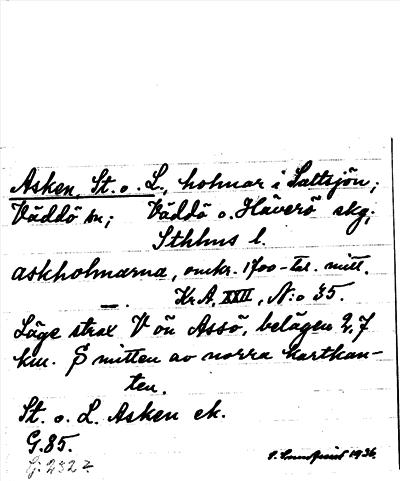 Asken, St. o. L., holmar i Saltsjön;
Väddö sn; Väddö o. Häverö skg;
Sthlms l.
askholmarna, omkr. 1700-tal. mitt.
— Kr.A. XXII, N:o 35.
Läge strax V ön Assö, belägen 2,7
km. S mitten av norra kartkan-
ten.
St. o. L. Asken ek.
G. 85.
G: 232
S. Lundquist 1936.